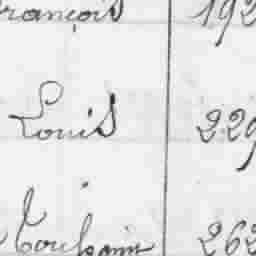 François 192
Louis 229
Toussaint 262